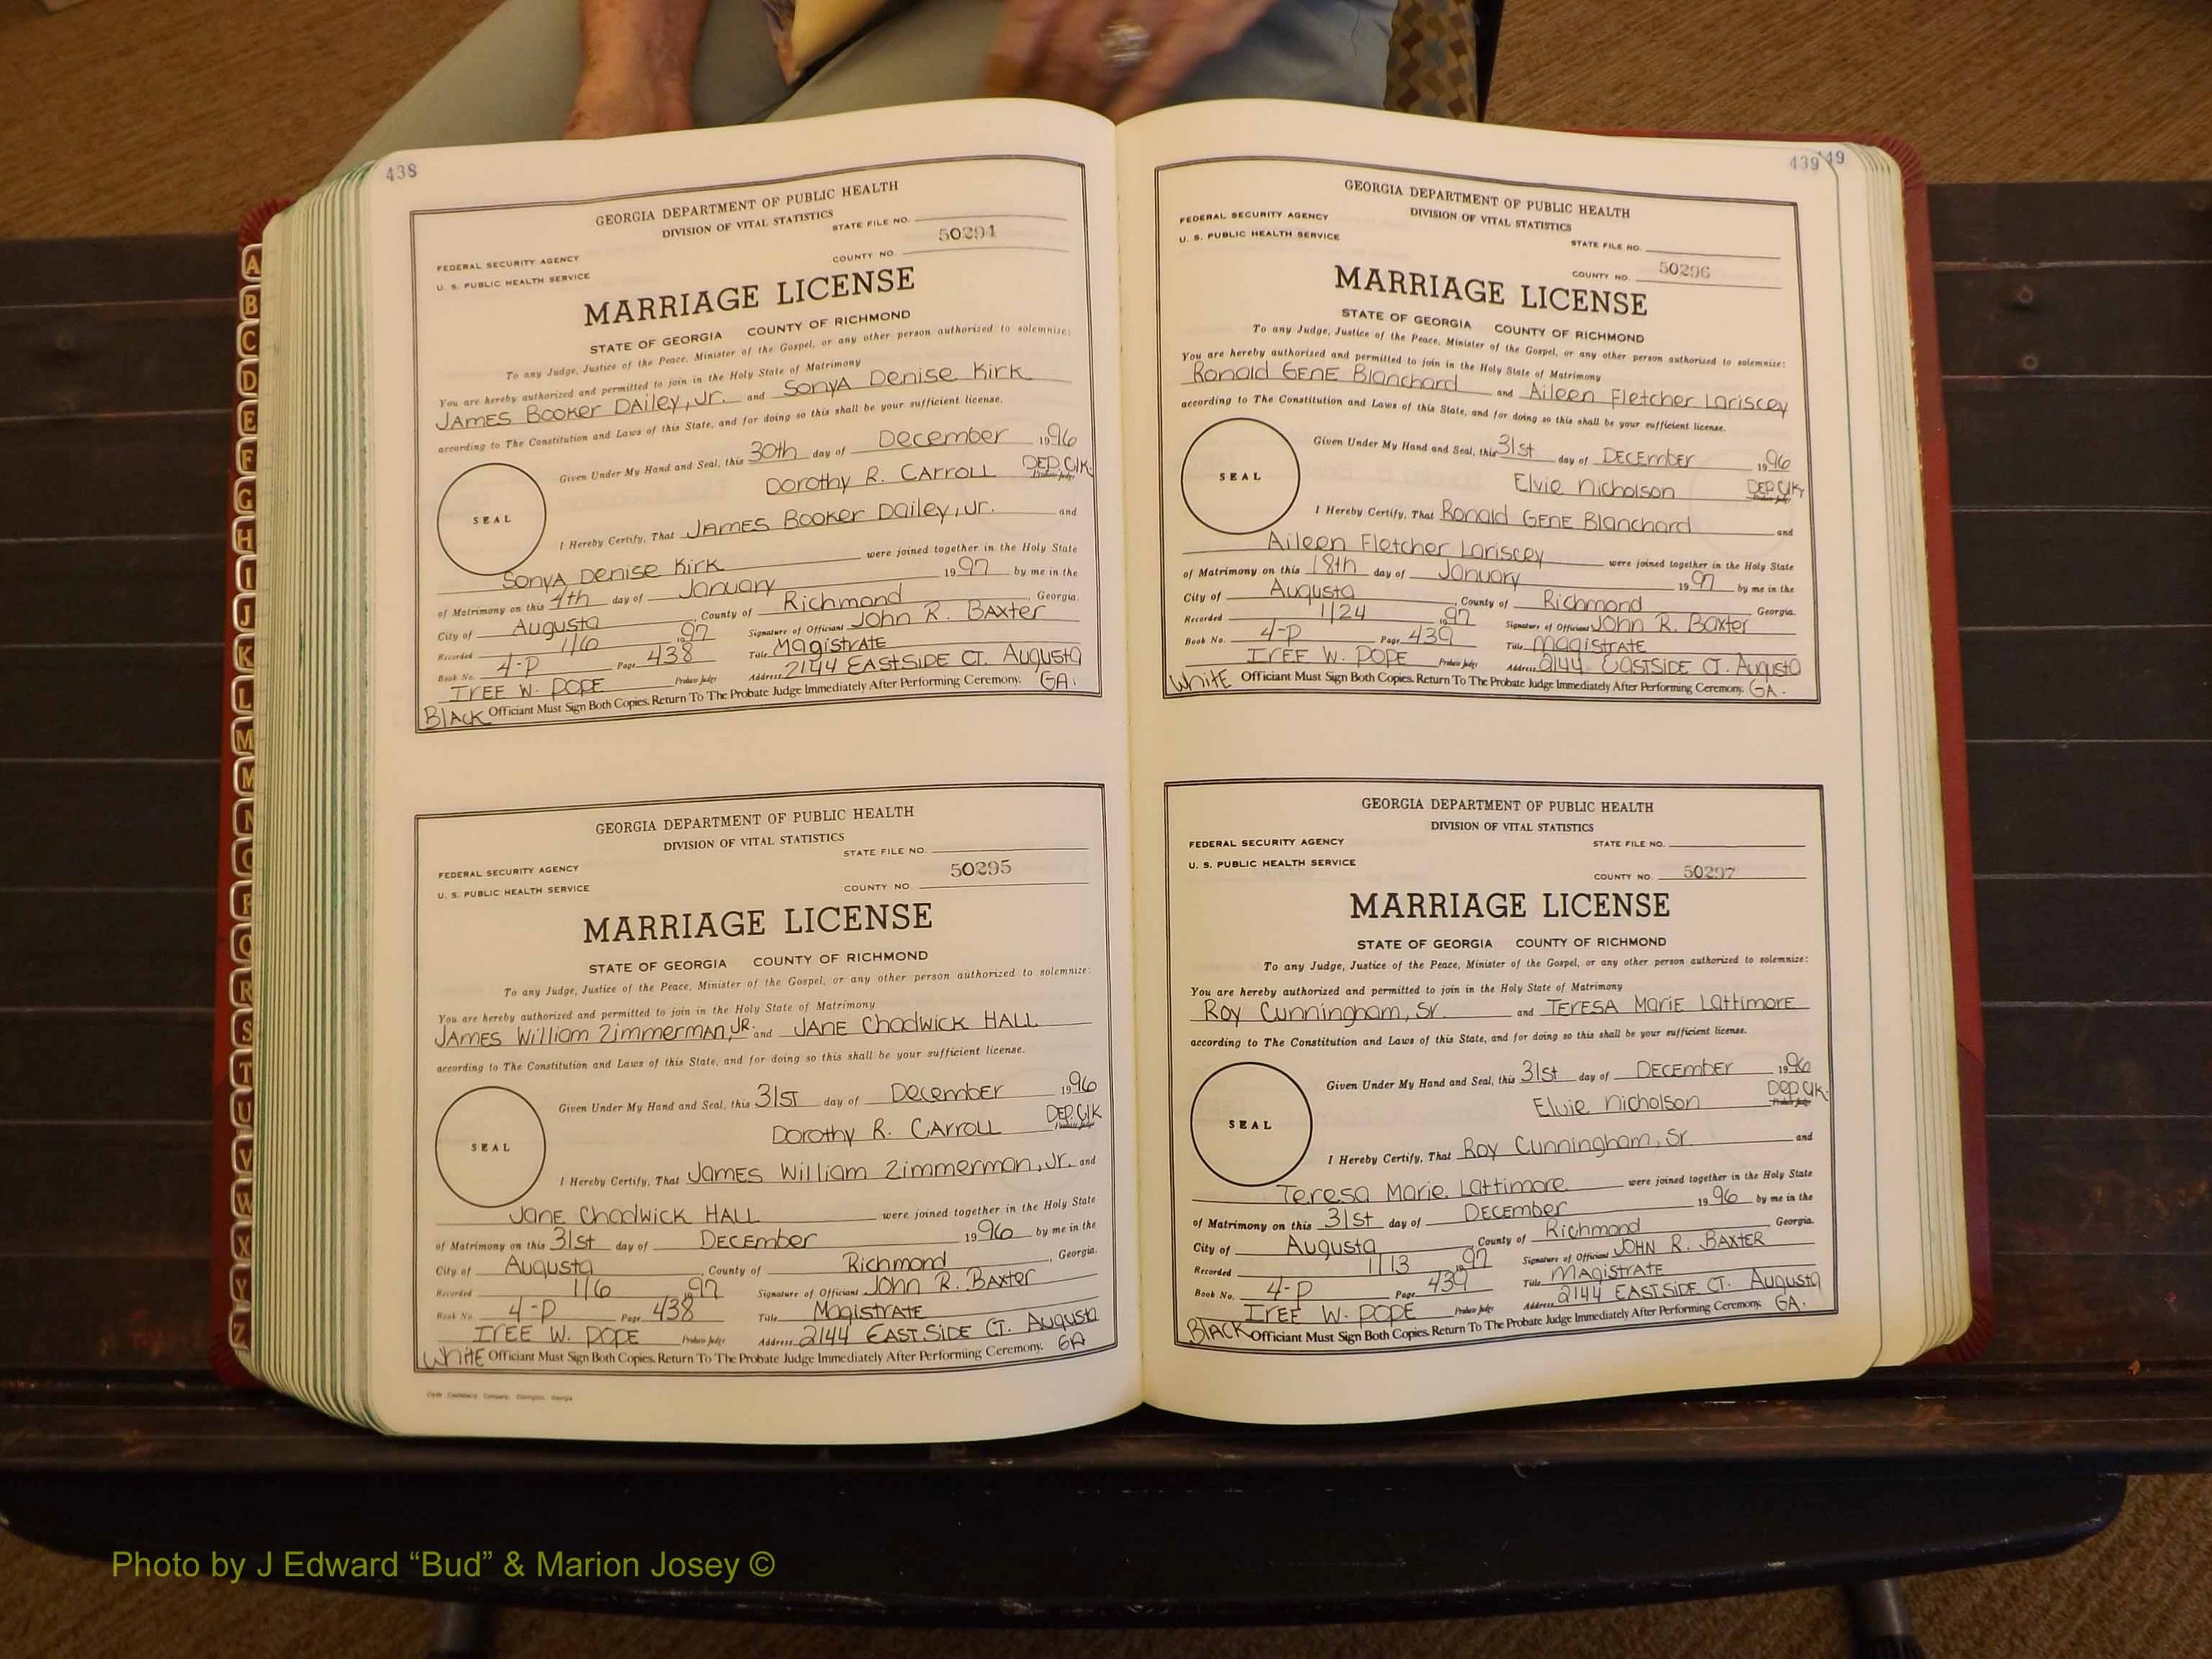 438
GEORGIA DEPARTMENT OF PUBLIC HEALTH
DIVISION OF VITAL STATISTICS
STATE FILE NO.
50294
FEDERAL SECURITY AGENCY
COUNTY NO.
U. S. PUBLIC HEALTH SERVICE
MARRIAGE LICENSE
STATE OF GEORGIA COUNTY OF RICHMOND
To any Judge, Justice of the Peace, Minister of the Gospel, or any other person authorized to solemnize:
You are hereby authorized and permitted to join in the Holy State of Matrimony
JAMES BOOKER DAiley, Jr. and SonyA Denise Kirk
according to The Constitution and Laws of this State, and for doing so this shall be your sufficient license.
Given Under My Hand and Seal, this 30th day of December 1996
Dorothy R. CARROLL DEP. Clk.
Probate Judge
SEAL
I Hereby Certify, That JAMES Booker Dailey, Jr. and
SonyA Denise Kirk were joined together in the Holy State
of Matrimony on this 4th day of January 1997 by me in the
City of Augusta, County of Richmond, Georgia.
Recorded 1/6 1997 Signature of Official John R. BAxter
Book No. 4-P Page 438 Title MagistrAtE
IREE W. POPE Probate Judge Address 2144 EASTSIDE CT. Augusta
BlAck Officiant Must Sign Both Copies. Return To The Probate Judge Immediately After Performing Ceremony. GA.
GEORGIA DEPARTMENT OF PUBLIC HEALTH
DIVISION OF VITAL STATISTICS
STATE FILE NO.
FEDERAL SECURITY AGENCY
50295
U. S. PUBLIC HEALTH SERVICE
COUNTY NO
MARRIAGE LICENSE
STATE OF GEORGIA COUNTY OF RICHMOND
To any Judge, Justice of the Peace, Minister of the Gospel, or any other person authorized to solemnize:
You are hereby authorized and permitted to join in the Holy State of Matrimony
JAMES William ZimmermAN, JR. and JANE Chadwick HALL
according to The Constitution and Laws of this State, and for doing so this shall be your sufficient license.
Given Under My Hand and Seal, this 31ST day of December 1996
Dorothy R. CArroLL DEP. Clk
Probate Judge
SEAL
I Hereby Certify, That James William Zimmerman, Jr. and
Jane Chadwick HALL were joined together in the Holy State
of Matrimony on this 31st day of DECEmber 1996 by me in the
City of Augusta, County of Richmond, Georgia.
Recorded 1/6 1997 Signature of Official John R. BAxter
Book No 4-P Page 438 Title MagistrAtE
IREE W. POPE Probate Judge Address 2144 EAST SIDE CT. Augusta
WhitE Officiant Must Sign Both Copies. Return To The Probate Judge Immediately After Performing Ceremony. GA
439 49
GEORGIA DEPARTMENT OF PUBLIC HEALTH
FEDERAL SECURITY AGENCY
DIVISION OF VITAL STATISTICS
U. S. PUBLIC HEALTH SERVICE
STATE FILE NO.
COUNTY NO. 50296
MARRIAGE LICENSE
STATE OF GEORGIA COUNTY OF RICHMOND
To any Judge, Justice of the Peace, Minister of the Gospel, or any other person authorized to solemnize:
You are hereby authorized and permitted to join in the Holy State of Matrimony
Ronald GENE Blanchard and Aileen Fletcher Lariscey
according to The Constitution and Laws of this State, and for doing so this shall be your sufficient license.
Given Under My Hand and Seal, this 31st day of DECEmber 1996
Elvie Nicholson DEP. Clk
Probate Judge
SEAL
I Hereby Certify, That Ronald GENE Blanchard and
Aileen Fletcher Lariscey were joined together in the Holy State
of Matrimony on this 18th day of January 1997 by me in the
City of Augusta, County of Richmond, Georgia.
Recorded 1/24 1997 Signature of Official John R. Baxter
Book No. 4-P Page 439 Title MagistrAtE
IREE W. POPE Probate Judge Address 2144 EASTSIDE CT. Augusta
WhitE Officiant Must Sign Both Copies. Return To The Probate Judge Immediately After Performing Ceremony. GA.
GEORGIA DEPARTMENT OF PUBLIC HEALTH
DIVISION OF VITAL STATISTICS
FEDERAL SECURITY AGENCY
STATE FILE NO.
U. S. PUBLIC HEALTH SERVICE
COUNTY NO. 50297
MARRIAGE LICENSE
STATE OF GEORGIA COUNTY OF RICHMOND
To any Judge, Justice of the Peace, Minister of the Gospel, or any other person authorized to solemnize:
You are hereby authorized and permitted to join in the Holy State of Matrimony
Roy Cunningham, Sr. and TERESA Marie Lattimore
according to The Constitution and Laws of this State, and for doing so this shall be your sufficient license.
Given Under My Hand and Seal, this 31st day of DECEmber 1996
Elvie Nicholson Dep. Clk.
Probate Judge
SEAL
I Hereby Certify, That Roy Cunningham, Sr. and
Teresa Marie Lattimore were joined together in the Holy State
of Matrimony on this 31st day of DECEmber 1996 by me in the
City of Augusta, County of Richmond Georgia.
Recorded 1/13 1997 Signature of Official JOHN R. BAXTER
Book No. 4-P Page 439 Title MAgistrAtE
IREE W. POPE Probate Judge Address 2144 EASTSIDE CT. Augusta
BlAck Officiant Must Sign Both Copies. Return To The Probate Judge Immediately After Performing Ceremony. GA.
A
B
C
D
E
F
G
H
I
J
K
L
M
M
N
O
P
Q
R
S
T
U
V
W
X
Y
Z
Photo by J Edward “Bud” & Marion Josey ©